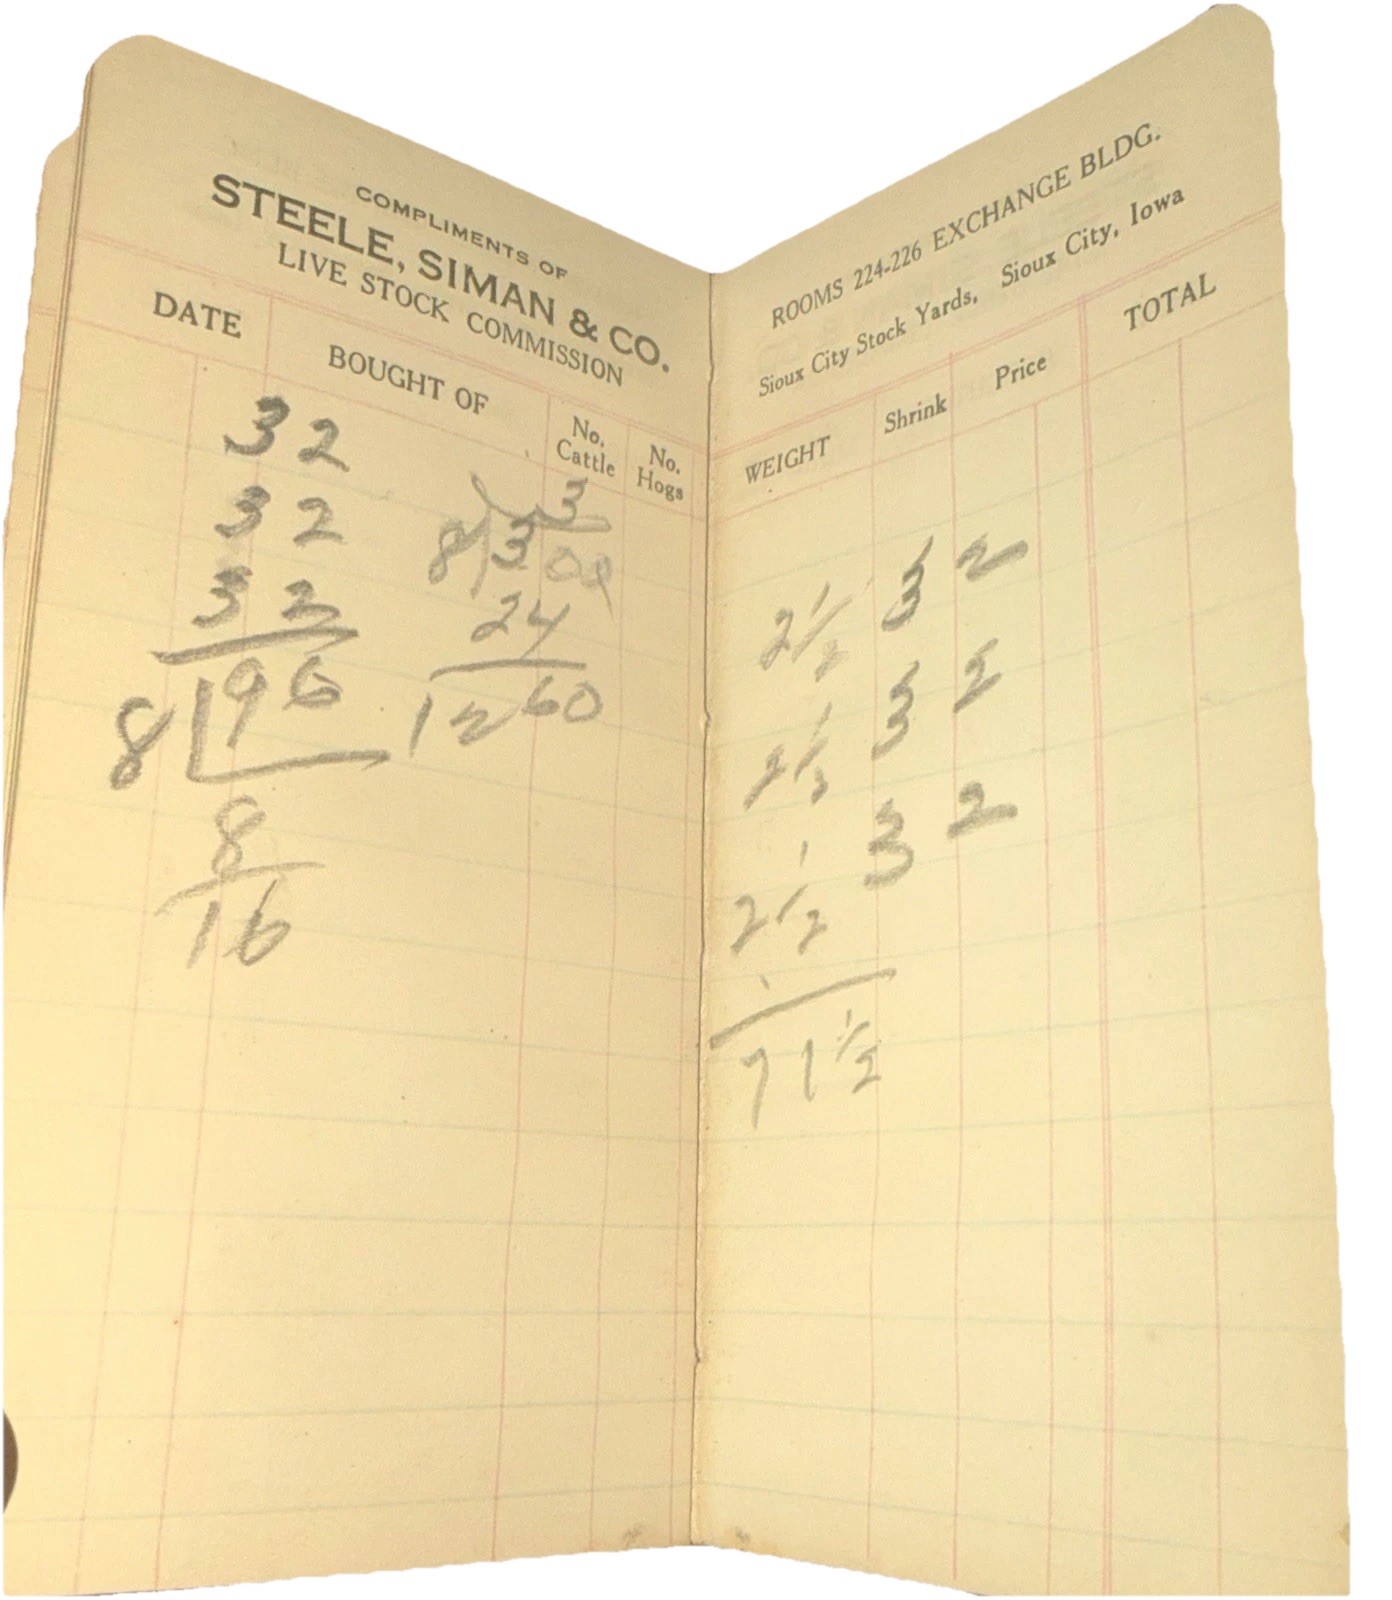 COMPLIMENTS OF
STEELE, SIMAN & CO.
LIVE STOCK COMMISSION
DATE BOUGHT OF No. Cattle No. Hogs
32
32
32
8 96
8
16
3
8 300
24
12 60
ROOMS 224-226 EXCHANGE BLDG.
Sioux City Stock Yards, Sioux City, Iowa
WEIGHT Shrink Price TOTAL
2 1/2 3 2
2 1/2 3 2
2 1/2 3 2
7 1 1/2